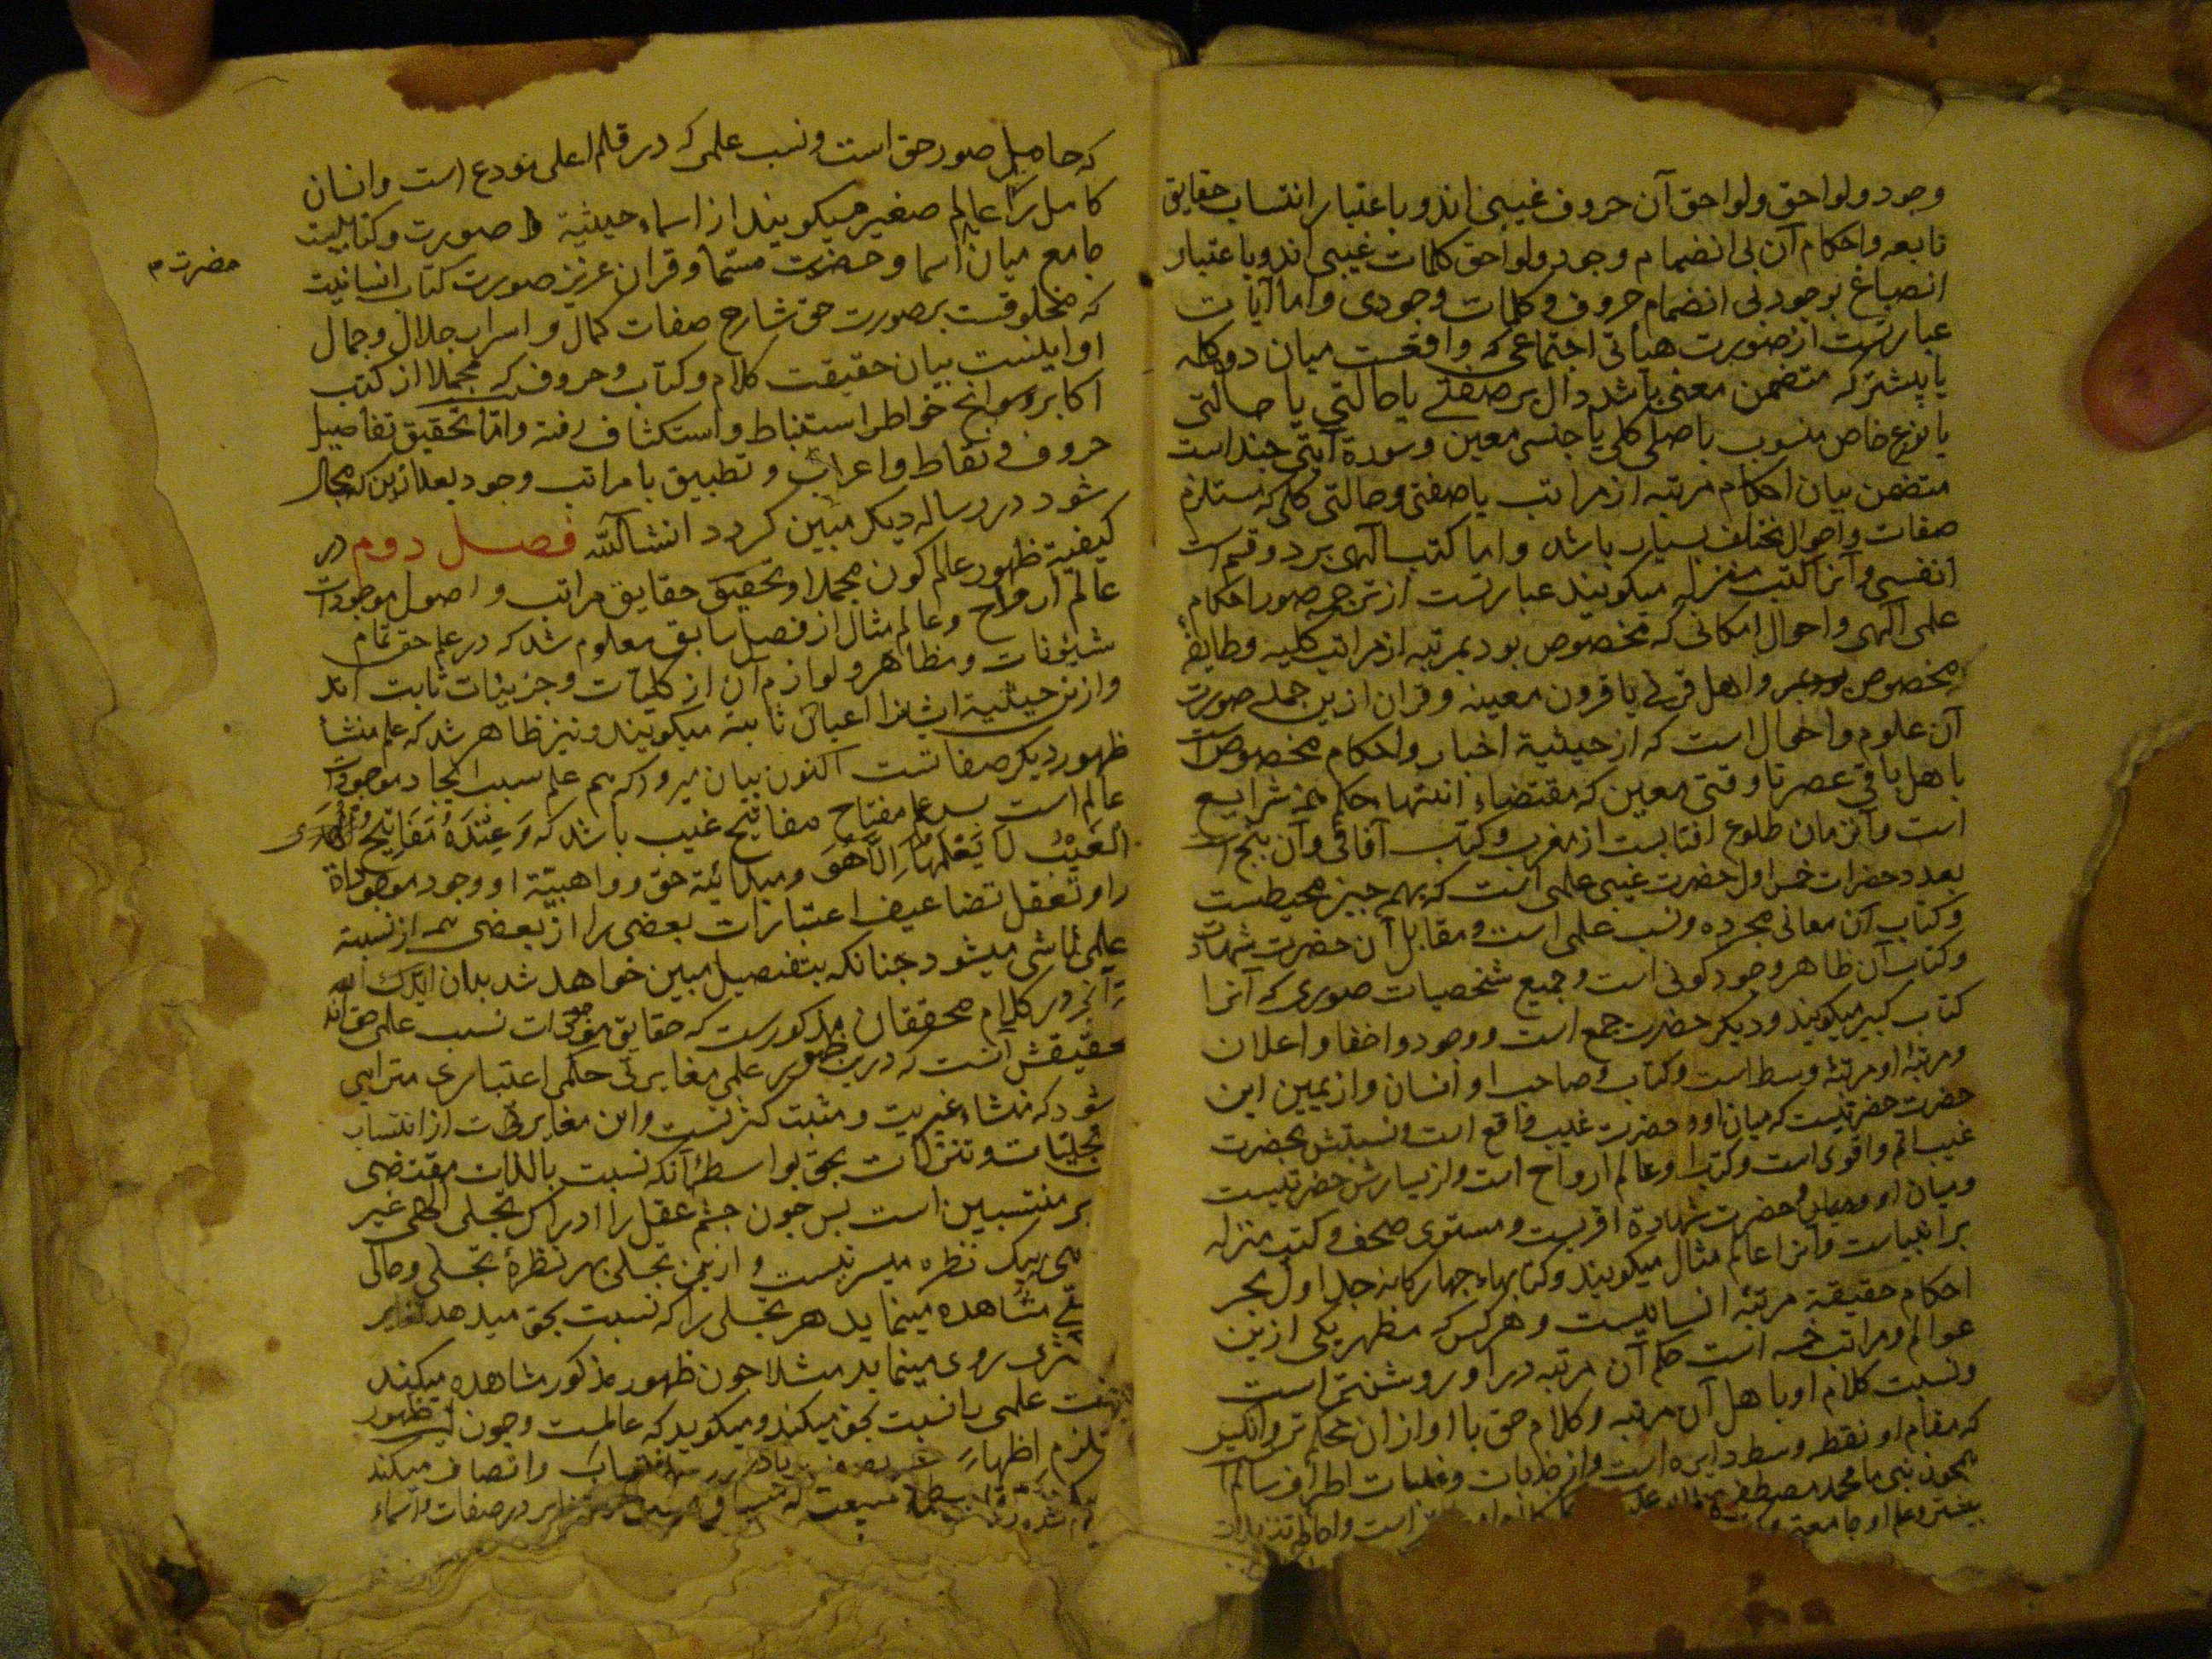 وجود ولواحق ولواحق آن حروف غیبی اند و باعتبار انتساب حقایق
تابعه و احکام آن بی انضمام وجود ولواحق کلمات غیبی اند و باعتبار
انصباغ بوجود بی انضمام حروف و کلمات وجودی و اما آیات
عبارتست از صورت هیأتی اجتماعی که واقعست میان دو کلمه
یا بیشتر که متضمن معنی باشد دال بر صفتی یا حالتی یا حالتی
یا نوع خاص منسوب باصلی کلی یا جنسی معین و سورة آیتی چند است
متضمن بیان احکام مرتبه از مراتب یا صفتی و حالتی کلی که مستلزم
صفات و احوال مختلف بسیار باشد و اما کتب الهی بر دو قسم است
انفسی و آنرا کتب منزله میکویند عبارتست از ترجمه صور احکام
علمی الهی و احوال امکانی که مخصوص بود بمرتبه از مراتب کلیه و طایفه
مخصوص و اهل قرنی یا قرون معینه و قران ازین جمله صورت
آن علوم و احوال است که از حیثیة اخبار و احکام مخصوص است
باهل باقی عصر تا وقتی معین که مقتضاء انتهاء حکم شرایع
است و آن زمان طلوع افتابست از مغرب و کتاب آفاقی و آن پنج است
بعدد حضرات خمس اول حضرت غیبی علمی است که بهمه چیز محیطست
و کتاب آن معانی مجرده و نسب علمی است و مقابل آن حضرت شهادت
و کتاب آن ظاهر وجود کونی است و جمیع شخصیات صوری که آنرا
کتاب کبیر میکویند و دیکر حضرت جمع است و وجود و اخفا و اعلان
و مرتبه او مرتبه وسط است و کتاب و صاحب او انسان و از یمین این
حضرت حضرتیست که میان او و حضرت غیب واقع است و نسبتش بحضرت
غیب اتم و اقوی است و کتاب او عالم ارواح است و از یسارش حضرتیست
و میان او و میان حضرت شهادة اقربست و مستوی صحف و کتب منزله
بر انبیاست و آنرا عالم مثال میکویند و کتابهاء چهارکانه جداول بحر
احکام حقیقة مرتبه انسانیست و هر کس که مظهر یکی ازین
عوالم و مراتب خمسه است حکم آن مرتبه در او روشنتر است
و نسبت کلام او با اهل آن مرتبه و کلام حق با او از ان محکم تر و انکس
که مقام او نقطه وسط دایره است و از جذبات و غلبات اطراف سالم
همچون نبی ما محمد مصطفی
بیشتر و علم او جامعتر است و احاطه
که حامل صور حق است و نسب علمی که در قلم اعلی مودع است و انسان
کامل را عالم صغیر میکویند از اسماء حیثیة صورت و کتابیت
جامع میان اسما و حضرت مسما و قران عزیز صورت کتاب انسانیت
حضرت م
که مخلوقست بر صورت حق شارح صفات کمال و اسرار جلال و جمال
او اینست بیان حقیقت کلام و کتاب و حروف که مجملا از کتب
اکابر و سوانح خواطر استنباط و استکشاف رفته و اما تحقیق تفاصیل
حروف و نقاط و اعراب و تطبیق با مراتب وجود بعد ازین که مجال
شود در رساله دیکر مبین کردد انشاالله فصل دوم در
کیفیة ظهور عالم کون مجملا و تحقیق حقایق مراتب و اصول موجودات
عالم ارواح و عالم مثال از فصل سابق معلوم شد که در علم حق تمام
شیؤنات و مظاهر و لوازم آن از کلیات و جزییات ثابت اند
و ازین حیثیة ایشانرا اعیان ثابته میکویند و نیز ظاهر شد که علم منشأ
ظهور دیکر صفاتست اکنون بیان میرود که هم علم سبب ایجاد موجودات
عالم است پس علم مفتاح مفاتیح غیب باشد که وَعِنْدَهُ مَفَاتِیحُ
الْغَیْبِ لَا یَعْلَمُهَا اِلَّا هُوَ و مبدائیة حق و واهبیّة او وجود موجوداة
را و تعقل تضاعیف اعتبارات بعضی را از بعضی همه از نسبة
علمی ناشی میشود چنانکه بتفصیل مبین خواهد شد بدان ایدک الله
آنچه در کلام محققان مذکورست که حقایق موجودات نسب علمی حق اند
حقیقتش آنست که درین ظهور علمی مغایرتی حکمی اعتباری مترایی
شود که منشاء غیریت و مثبت کثرتست و این مغایرت از انتساب
تجلیات و تنزلات بحق بواسطه آنکه نسبت بالذات مقتضی
منتسبین است پس چون چشم عقل را ادراک تجلی الهی غیر
بیک نظره میسر نیست و ازین تجلی بهر نظرة تجلی و حالی
مشاهده مینماید هر تجلی را که نسبت بحق میدهد تغایر
روی مینماید مثلا چون ظهور مذکور مشاهده میکند
علمی را نسبت بحق میکند و میکوید که عالمست و چون ظهور
اظهار و اتصاف میکند
در صفات و اسماء